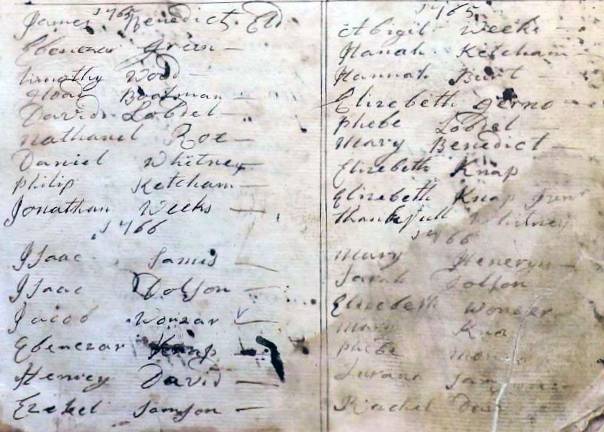 1765
James Benedict Eld
Ebenezer Green
Timothy Wood
Isaac Bootman
David Lobdel
Nathanel Roe
Daniel Whitney
Philip Ketcham
Jonathan Weeks
1766
Isaac James
Isaac Dolfson
Jacob Wonzar
Ebenezar Knap
Henrey David
Ezekel Samson
1765
Abigil Weeks
Hanah Ketcham
Hannah
Elizebeth
Phebe Lobdel
Mary Benedict
Elizebeth Knap
Elizebeth Knap
thankfull Whitney
1766
Mary
Sarah
Elizebeth Wonzer
Mary
Phebe
Rachel